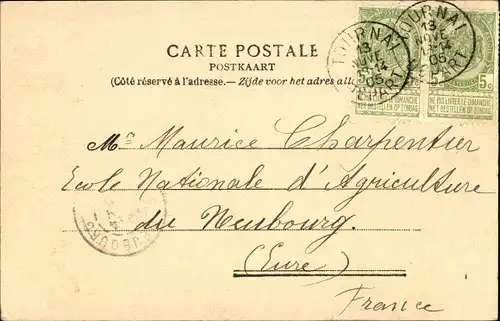 CARTE POSTALE
POSTKAART
(Côté réservé à l'adresse.— Zijde voor het adres
TOURNAI
13
NOV
14
05
DEPART
TOURNAI
13
NOV
14
05
DEPART
5c 5c
NE PAS LIVRER LE DIMANCHE NE PAS LIVRER LE DIMANCHE
NIET BESTELLEN OP ZONDAG NIET BESTELLEN OP ZONDAG
Mr Maurice Charpentier
Ecole Nationale d'Agriculture
du Neubourg
(Eure)
France